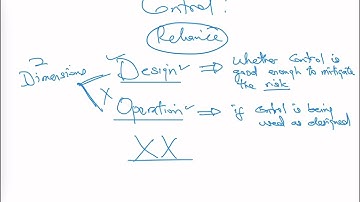 Control:
Reliance
2
Dimensions
Design ⇒ whether control is
good enough to mitigate
the risk
X
Operation ⇒ if control is being
used as designed
XX